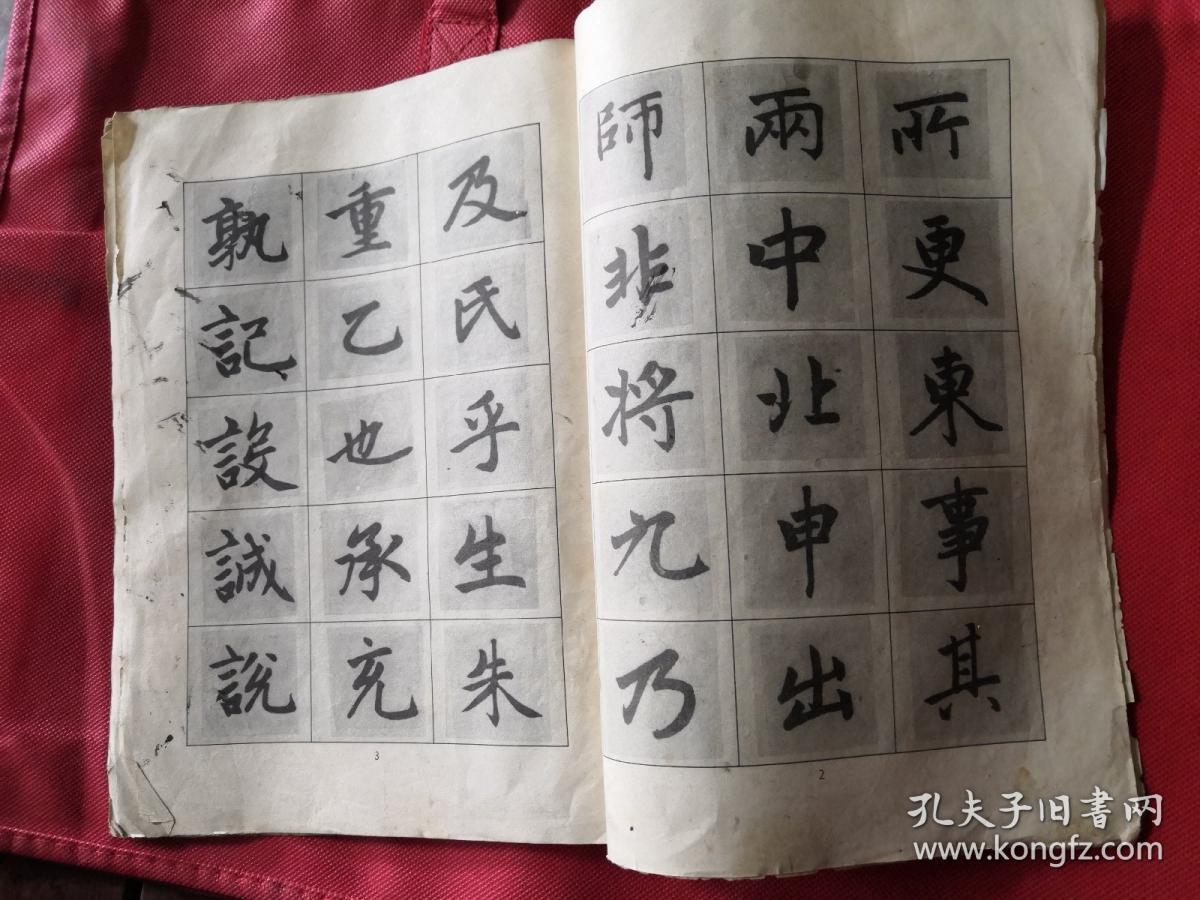 所更東事其
兩中北申出
師非將九乃
2
及氏乎生朱
重乙也承充
孰記設誠說
3
孔夫子旧書网
www.kongfz.com